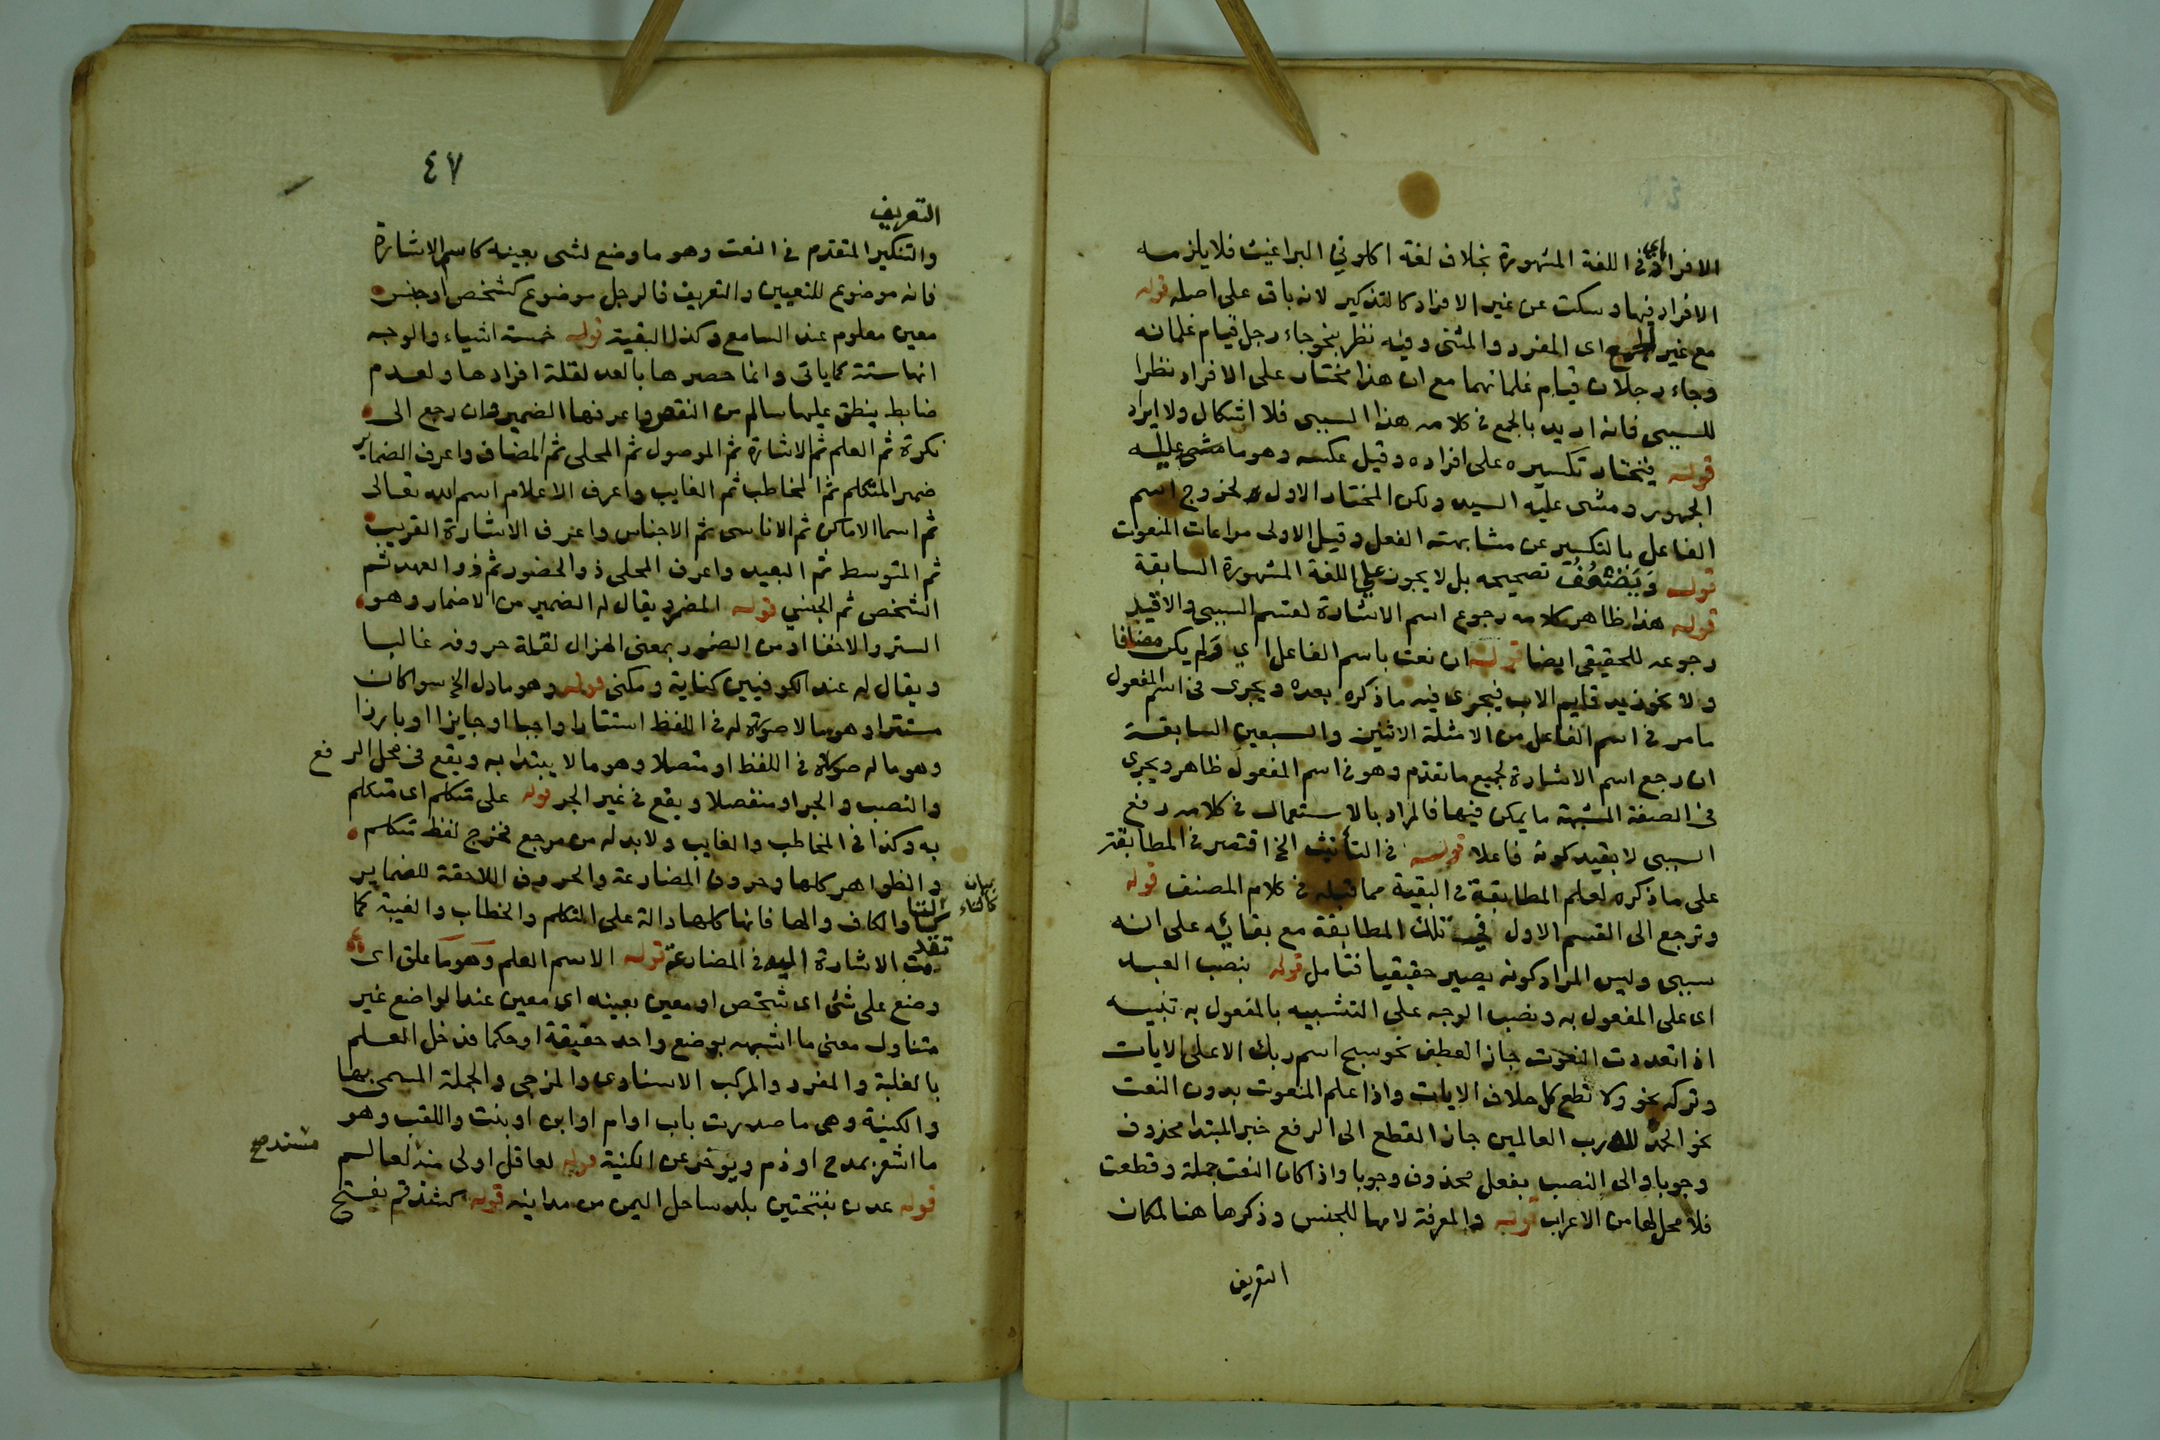 الافراد اى في اللغة المشهورة بخلاف لغة اكلوني البراغيث فلا يلزمه
الافراد فيها وسكت عن غير الافراد كالتذكير لانه باق على اصله قوله
مع غير الجمع اى المفرد والمثنى وفيه نظر بنحو جاء رجل قيام غلمانه
وجاء رجلان قيام غلمانهما مع ان هذا مختار على الافراد نظرا
للسببى فانه اريد بالجمع في كلامه هذا السببى فلا اشكال ولا ايراد
قوله فيختار تكسيره على افراده وقيل عكسه وهو ما مشى عليه
الجمهور ومشى عليه السيد ولكن المختار الاول لخروج اسم
الفاعل بالتكسير عن مشابهته الفعل وقيل الاولى مراعات المنعوت
قوله وَيَضْعُفُ تصحيحه بل لا يجوز على اللغة المشهورة السابقة
قوله هذا ظاهر كلامه رجوع اسم الاشارة لقسم السببى والاقيد
رجوعه للحقيقى ايضا قوله ان نعت باسم الفاعل اي ولم يكن مضافا
ولا نحو زيد قايم الاب فيجرى فيه ما ذكره بعده ويجرى في اسم المفعول
ما مر في اسم الفاعل من الامثلة الاثنين والسبعين السابقة
ان رجع اسم الاشارة لجميع ما تقدم وهو في اسم المفعول ظاهر ويجرى
في الصفة المشبهة ما يمكن فيها فالمراد بالاستعمال في كلامه رفع
السببى لا بقيد كونه فاعلا قوله في التأنيث الخ اقتصر في المطابقة
على ما ذكره لعلم المطابقة في البقية مما قبله في كلام المصنف قوله
وترجع الى القسم الاول في تلك المطابقة مع بقائه على انه
سببى وليس المراد كونه يصير حقيقيا فتامل قوله بنصب العبد
اى على المفعول به ونصب الوجه على التشبيه بالمفعول به تنبيه
اذا تعددت النعوت جاز العطف نحو سبح اسم ربك الاعلى الايات
وتركه نحو ولا تطع كل حلاف الايات واذا علم المنعوت بدون النعت
نحو الحمد لله رب العالمين جاز القطع الى الرفع خبر المبتدا محذوف
وجوبا والى النصب بفعل محذوف وجوبا واذا كان النعت جملة وقطعت
فلا محل لها من الاعراب قوله والمعرفة لامها للجنس وذكرها هنا لمكان
التعريف
٤٧
التعريف
والتنكير المتقدم في النعت وهو ما وضع لشى بعينه كاسم الاشارة
فانه موضوع للتعيين والتعريف فالرجل موضوع كشخص او جنس
معين معلوم عند السامع وكذا البقية قوله خمسة اشياء والوجه
انها ستة كما ياتى وانما حصرها بالعد لقلة افرادها ولعدم
ضابط ينطق عليها سالم من النقص واعرفها الضمير وان رجع الى
نكرة ثم العلم ثم الاشارة ثم الموصول ثم المحلى ثم المضاف واعرف الضماير
ضمير المتكلم ثم المخاطب ثم الغايب واعرف الاعلام اسم الله تعالى
ثم اسما الاماكن ثم الاناسى ثم الاجناس واعرف الاشارة القريب
ثم المتوسط ثم البعيد واعرف المحلى ذو الحضور ثم ذو العهد ثم
الشخص ثم الجنسي قوله المضمر ويقال له الضمير من الاضمار وهو
الستر والاخفا او من الضمور بمعنى الهزال لقلة حروفه غالبا
ويقال له عند الكوفيين كناية ومكنى قوله وهو ما دل الخ سوا كان
مستترا وهو ما لا صورة له في اللفظ استتارا واجبا او جايزا او بارزا
وهو ما له صورة في اللفظ او متصلا وهو ما لا يبتدا به ويقع في محل الرفع
والنصب والجر او منفصلا ويقع في غير الجر قوله على متكلم اى متكلم
به وكذا في المخاطب والغايب ولا بد له من مرجع فخرج لفظ متكلم
والظواهر كلها وحروف المضارعة والحروف اللاحقة للضماير
بيان كالتاء
كالتا والكاف والها فانها كلها دالة على التكلم والخطاب والغيبة كما
تقدمت الاشارة اليه في المضارعة قوله الاسم العلم وهو ما علق اى
وضع على شئ اى شخص او معين بعينه اى معين عند الواضع غير
متناول معنى ما اشبهه بوضع واحد حقيقة او حكما فدخل العلم
بالغلبة والمفرد والمركب الاسنادى والمزجى والجملة المسمى بها
والكنية وهى ما صدرت باب او ام او ابن او بنت واللقب وهو
ما اشعر بمدح او ذم ويوخر عن الكنية قوله لعاقل اولى منه لعالم
قوله عدن بفتحتين بلد ساحل اليمن من مداينه قوله كشذقم بفتح